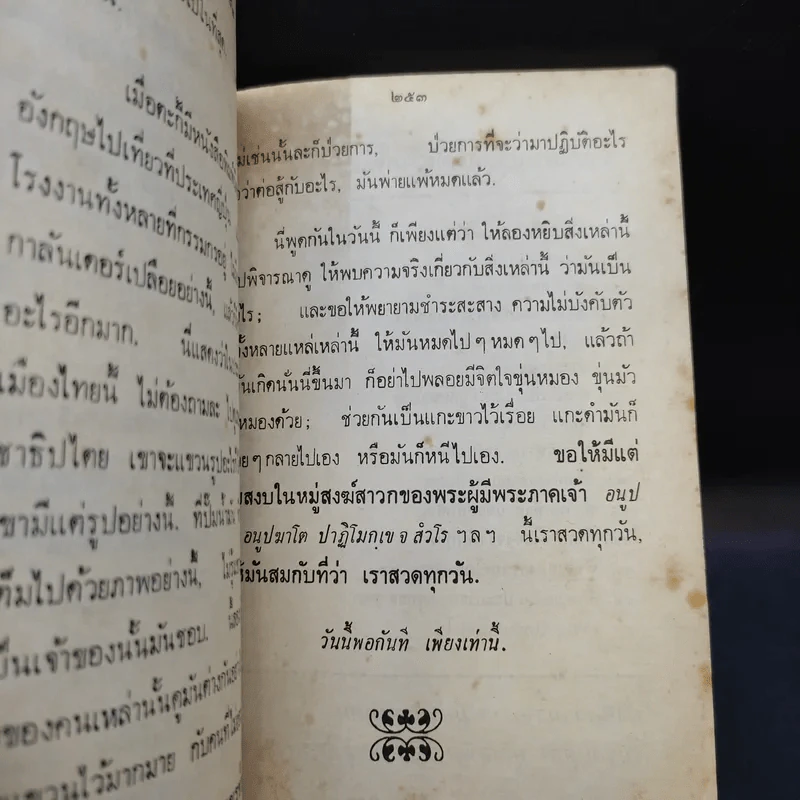 เมื่อตะกี้มีหนังสือ
อังกฤษไปเที่ยวที่ประเทศญี่ปุ่น
โรงงานทั้งหลายที่กรรมกรอยู่
กาลันเดอร์เปลือยอย่างนี้,
อะไรอีกมาก. นี่แสดงว่า
เมืองไทยนี้ ไม่ต้องถามละ
ชาธิปไตย เขาจะแขวนรูป
ขามีแต่รูปอย่างนี้.
ต็มไปด้วยภาพอย่างนี้,
ป็นเจ้าของนั้นมันชอบ.
ของคนเหล่านั้นดูมันต่างกัน
แขวนไว้มากมาย กับคนที่ไม่
๒๕๓
ม่เช่นนั้นละก็ป่วยการ, ป่วยการที่จะว่ามาปฏิบัติอะไร
ว่าต่อสู้กับอะไร, มันพ่ายแพ้หมดแล้ว.
นี่พูดกันในวันนี้ ก็เพียงแต่ว่า ให้ลองหยิบสิ่งเหล่านี้
ปพิจารณาดู ให้พบความจริงเกี่ยวกับสิ่งเหล่านี้ ว่ามันเป็น
ไร; และขอให้พยายามชำระสะสาง ความไม่บังคับตัว
ั้งหลายแหล่เหล่านี้ ให้มันหมดไปๆหมดๆไป, แล้วถ้า
ันเกิดนั่นนี่ขึ้นมา ก็อย่าไปพลอยมีจิตใจขุ่นหมอง ขุ่นมัว
หมองด้วย; ช่วยกันเป็นแกะขาวไว้เรื่อย แกะดำมันก็
ๆกลายไปเอง หรือมันก็หนีไปเอง. ขอให้มีแต่
สงบในหมู่สงฆ์สาวกของพระผู้มีพระภาคเจ้า อนูป
อนูปฆาโต ปาฏิโมกฺเข จ สํวโร ฯลฯ นี้เราสวดทุกวัน,
ห้มันสมกับที่ว่า เราสวดทุกวัน.
วันนี้พอกันที เพียงเท่านี้.